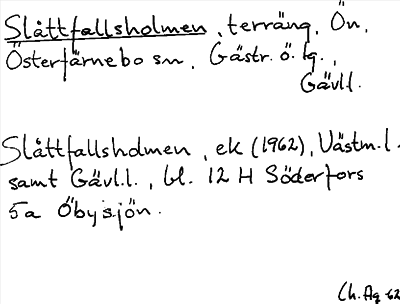 Slåttfallsholmen, terräng, Ön,
Österfärnebo sn, Gästr. ö. tg.,
Gävl.l.
Slåttfallsholmen, ek (1962), Västm.l.
samt Gävl.l., bl. 12 H Söderfors
5a Öbysjön.
Ch. Ag 62